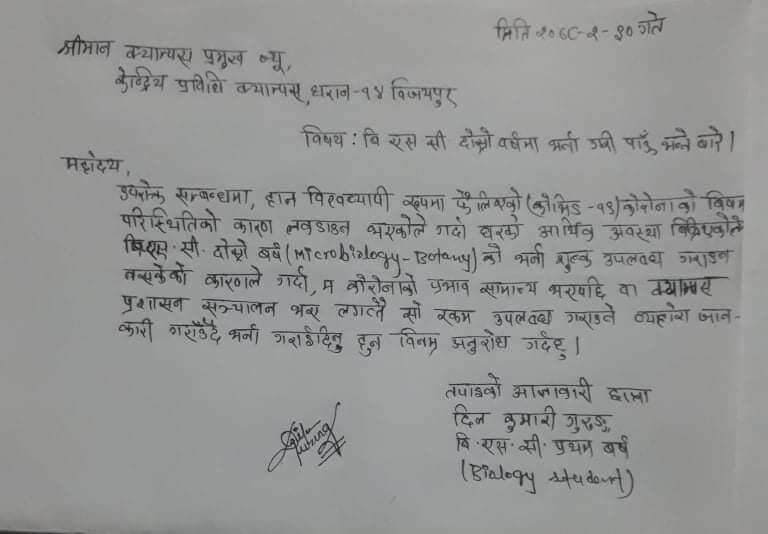 मिति २०७८-२-३० गते
श्रीमान क्याम्पस प्रमुख ज्यू,
केन्द्रिय प्रविधि क्याम्पस, धरान-१४ विजयपुर
विषय : बि एस सी दोस्रो वर्षमा भर्ना गरी पाउँ भन्ने बारे।
महोदय,
उपरोक्त सम्बन्धमा, हाल विश्वव्यापी रूपमा फैलिएको (कोभिड -१९) कोरोनाको विषम
परिस्थितिको कारण लकडाउन भएकोले गर्दा घरको आर्थिक अवस्था बिग्रिएकोले
बि.एस.सी. दोस्रो बर्ष (Microbiology-Botany) को भर्ना शुल्क उपलब्ध गराउन
नसकेको कारणले गर्दा, म कोरोनाको प्रभाव सामान्य भएपछि वा क्याम्पस
प्रशासन सञ्चालन भए लगत्तै सो रकम उपलब्ध गराउने व्यहोरा जान-
कारी गराउँदै भर्ना गराईदिनु हुन विनम्र अनुरोध गर्दछु।
तपाईको आज्ञाकारी छात्रा
दिल कुमारी गुरुङ्ग
बि.एस.सी. प्रथम बर्ष
(Biology student)